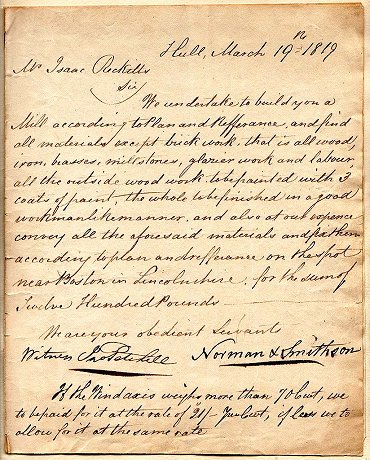 Hull, March 19th 1819
Mr Isaac Ricketts
Sir
We undertake to build you a
Mill according to Plan and Refferance, and find
all materials except brick work, that is all wood,
iron, brasses, millstones, glazier work and labour
all the outside wood work to be painted with 3
coats of paint, the whole to be finished in a good
workmanlike manner, and also at our expence
convey all the aforesaid materials and fix them
according to plan and refferance on the spot
near Boston in Lincolnshire, for the sum of
Twelve Hundred Pounds
We are your obedient Servants
Witness Norman & Smithson
If the Wind axis weighs more than 70 Cwt, we
to be paid for it at the rate of 21/- Per Cwt, if less we to
allow for it at the same rate